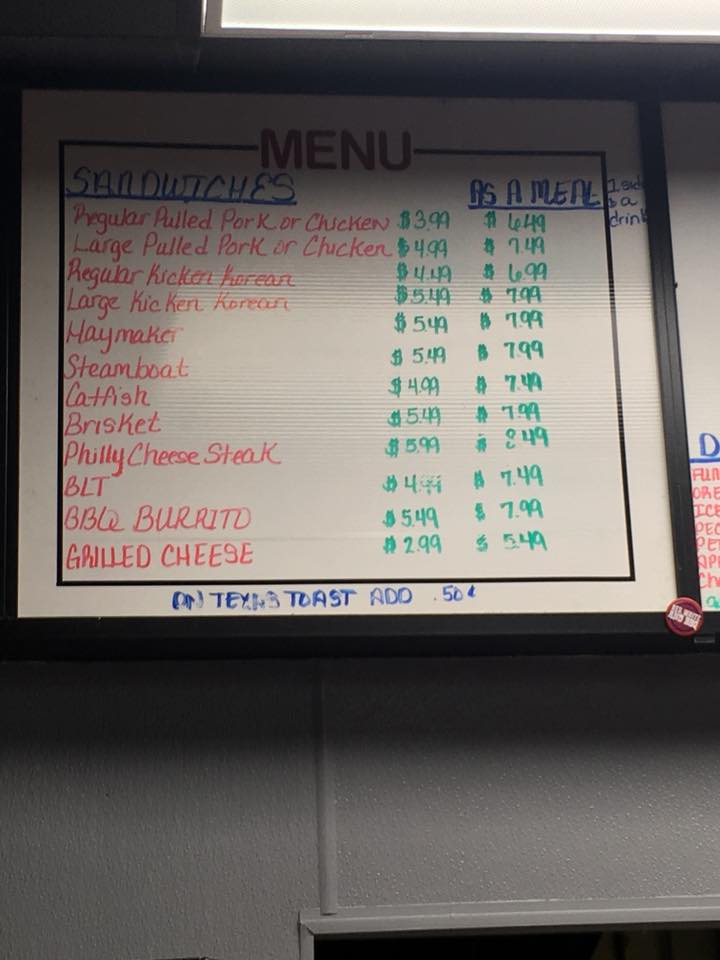 MENU
SANDWICHES AS A MEAL 1 side
& a
drink
Regular Pulled Pork or Chicken $3.99 $ 6.49
Large Pulled Pork or Chicken $4.99 $ 7.49
Regular Kicken Korean $4.49 $ 6.99
Large Kicken Korean $5.49 $ 7.99
Haymaker $5.49 $ 7.99
Steamboat $5.49 $ 7.99
Catfish $4.99 $ 7.49
Brisket $5.49 $ 7.99
Philly Cheese Steak $5.99 $ 8.49
BLT $4.99 $ 7.49
BBQ BURRITO $5.49 $ 7.99
GRILLED CHEESE $2.99 $ 5.49
ON TEXAS TOAST ADD .50¢
D
FUN
ORE
ICE
PEC
PET
APP
Ch